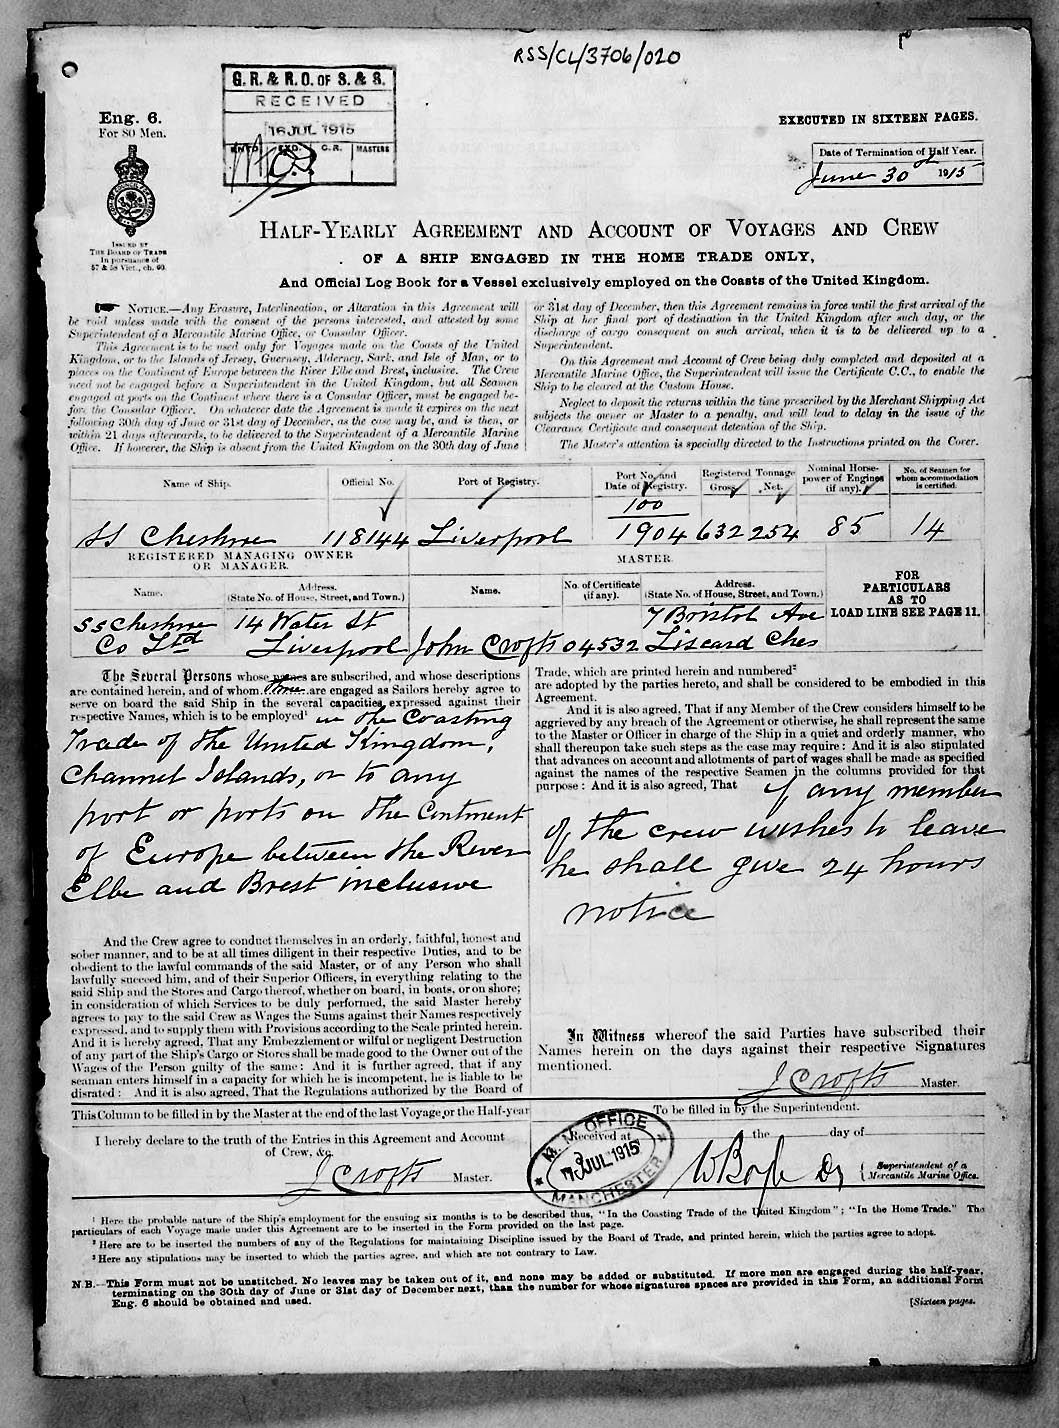 RSS/CL/3706/020
G. R. & R. O. OF S. & S.
RECEIVED
16 JUL 1915
C.R. MASTERS
Eng. 6.
For 80 Men.
ISSUED BY
THE BOARD OF TRADE
In pursuance of
57 & 58 Vict., ch. 60.
EXECUTED IN SIXTEEN PAGES.
Date of Termination of Half Year.
June 30th 1915
HALF-YEARLY AGREEMENT AND ACCOUNT OF VOYAGES AND CREW
OF A SHIP ENGAGED IN THE HOME TRADE ONLY,
And Official Log Book for a Vessel exclusively employed on the Coasts of the United Kingdom.
NOTICE.—Any Erasure, Interlineation, or Alteration in this Agreement will
be void unless made with the consent of the persons interested, and attested by some
Superintendent of a Mercantile Marine Office, or Consular Officer.
This Agreement is to be used only for Voyages made on the Coasts of the United
Kingdom, or to the Islands of Jersey, Guernsey, Alderney, Sark, and Isle of Man, or to
places on the Continent of Europe between the River Elbe and Brest, inclusive. The Crew
need not be engaged before a Superintendent in the United Kingdom, but all Seamen
engaged at ports on the Continent where there is a Consular Officer, must be engaged be-
fore the Consular Officer. On whatever date the Agreement is made it expires on the next
following 30th day of June or 31st day of December, as the case may be, and is then, or
within 21 days afterwards, to be delivered to the Superintendent of a Mercantile Marine
Office. If however, the Ship is absent from the United Kingdom on the 30th day of June
or 31st day of December, then this Agreement remains in force until the first arrival of the
Ship at her final port of destination in the United Kingdom after such day, or the
discharge of cargo consequent on such arrival, when it is to be delivered up to a
Superintendent.
On this Agreement and Account of Crew being duly completed and deposited at a
Mercantile Marine Office, the Superintendent will issue the Certificate C.C., to enable the
Ship to be cleared at the Custom House.
Neglect to deposit the returns within the time prescribed by the Merchant Shipping Act
subjects the owner or Master to a penalty, and will lead to delay in the issue of the
Clearance Certificate and consequent detention of the Ship.
The Master's attention is specially directed to the Instructions printed on the Cover.
Name of Ship. Official No. Port of Registry. Port No. and Date of Registry. Registered Tonnage Gross. Net. Nominal Horse-power of Engines (if any). No. of Seamen for whom accommodation is certified.
SS Cheshire 118144 Liverpool 100 1904 632 254 85 14
REGISTERED MANAGING OWNER OR MANAGER. MASTER.
Name. Address. (State No. of House, Street, and Town.) Name. No. of Certificate (if any). Address. (State No. of House, Street, and Town.)
FOR
PARTICULARS
AS TO
LOAD LINE SEE PAGE 11.
SS Cheshire 14 Water St 7 Bristol Ave
Co Ltd Liverpool John Crofts 04532 Liscard Ches
The Several Persons whose names are subscribed, and whose descriptions
are contained herein, and of whom three are engaged as Sailors hereby agree to
serve on board the said Ship in the several capacities expressed against their
respective Names, which is to be employed¹ in the Coasting
Trade of the United Kingdom,
Channel Islands, or to any
port or ports on the Continent
of Europe between the River
Elbe and Brest inclusive
And the Crew agree to conduct themselves in an orderly, faithful, honest and
sober manner, and to be at all times diligent in their respective Duties, and to be
obedient to the lawful commands of the said Master, or of any Person who shall
lawfully succeed him, and of their Superior Officers, in everything relating to the
said Ship and the Stores and Cargo thereof, whether on board, in boats, or on shore;
in consideration of which Services to be duly performed, the said Master hereby
agrees to pay to the said Crew as Wages the Sums against their Names respectively
expressed, and to supply them with Provisions according to the Scale printed herein.
And it is hereby agreed, That any Embezzlement or wilful or negligent Destruction
of any part of the Ship's Cargo or Stores shall be made good to the Owner out of the
Wages of the Person guilty of the same: And it is further agreed, that if any
seaman enters himself in a capacity for which he is incompetent, he is liable to be
disrated: And it is also agreed, That the Regulations authorized by the Board of
Trade, which are printed herein and numbered²
are adopted by the parties hereto, and shall be considered to be embodied in this
Agreement.
And it is also agreed, That if any Member of the Crew considers himself to be
aggrieved by any breach of the Agreement or otherwise, he shall represent the same
to the Master or Officer in charge of the Ship in a quiet and orderly manner, who
shall thereupon take such steps as the case may require: And it is also stipulated
that advances on account and allotments of part of wages shall be made as specified
against the names of the respective Seamen in the columns provided for that
purpose: And it is also agreed, That if any member
of the crew wishes to leave
he shall give 24 hours
notice
In Witness whereof the said Parties have subscribed their
Names herein on the days against their respective Signatures
mentioned.
J Crofts Master.
This Column to be filled in by the Master at the end of the last Voyage or the Half-year
I hereby declare to the truth of the Entries in this Agreement and Account
of Crew, &c.
J Crofts Master.
To be filled in by the Superintendent.
Received at the day of
M. M. OFFICE
JUL 1915
MANCHESTER
Superintendent of a
Mercantile Marine Office.
¹ Here the probable nature of the Ship's employment for the ensuing six months is to be described thus, "In the Coasting Trade of the United Kingdom"; "In the Home Trade." The
particulars of each Voyage made under this Agreement are to be inserted in the Form provided on the last page.
² Here are to be inserted the numbers of any of the Regulations for maintaining Discipline issued by the Board of Trade, and printed herein, which the parties agree to adopt.
³ Here any stipulations may be inserted to which the parties agree, and which are not contrary to Law.
N.B.—This Form must not be unstitched. No leaves may be taken out of it, and none may be added or substituted. If more men are engaged during the half-year,
terminating on the 30th day of June or 31st day of December next, than the number for whose signatures spaces are provided in this Form, an additional Form
Eng. 6 should be obtained and used.
[Sixteen pages.